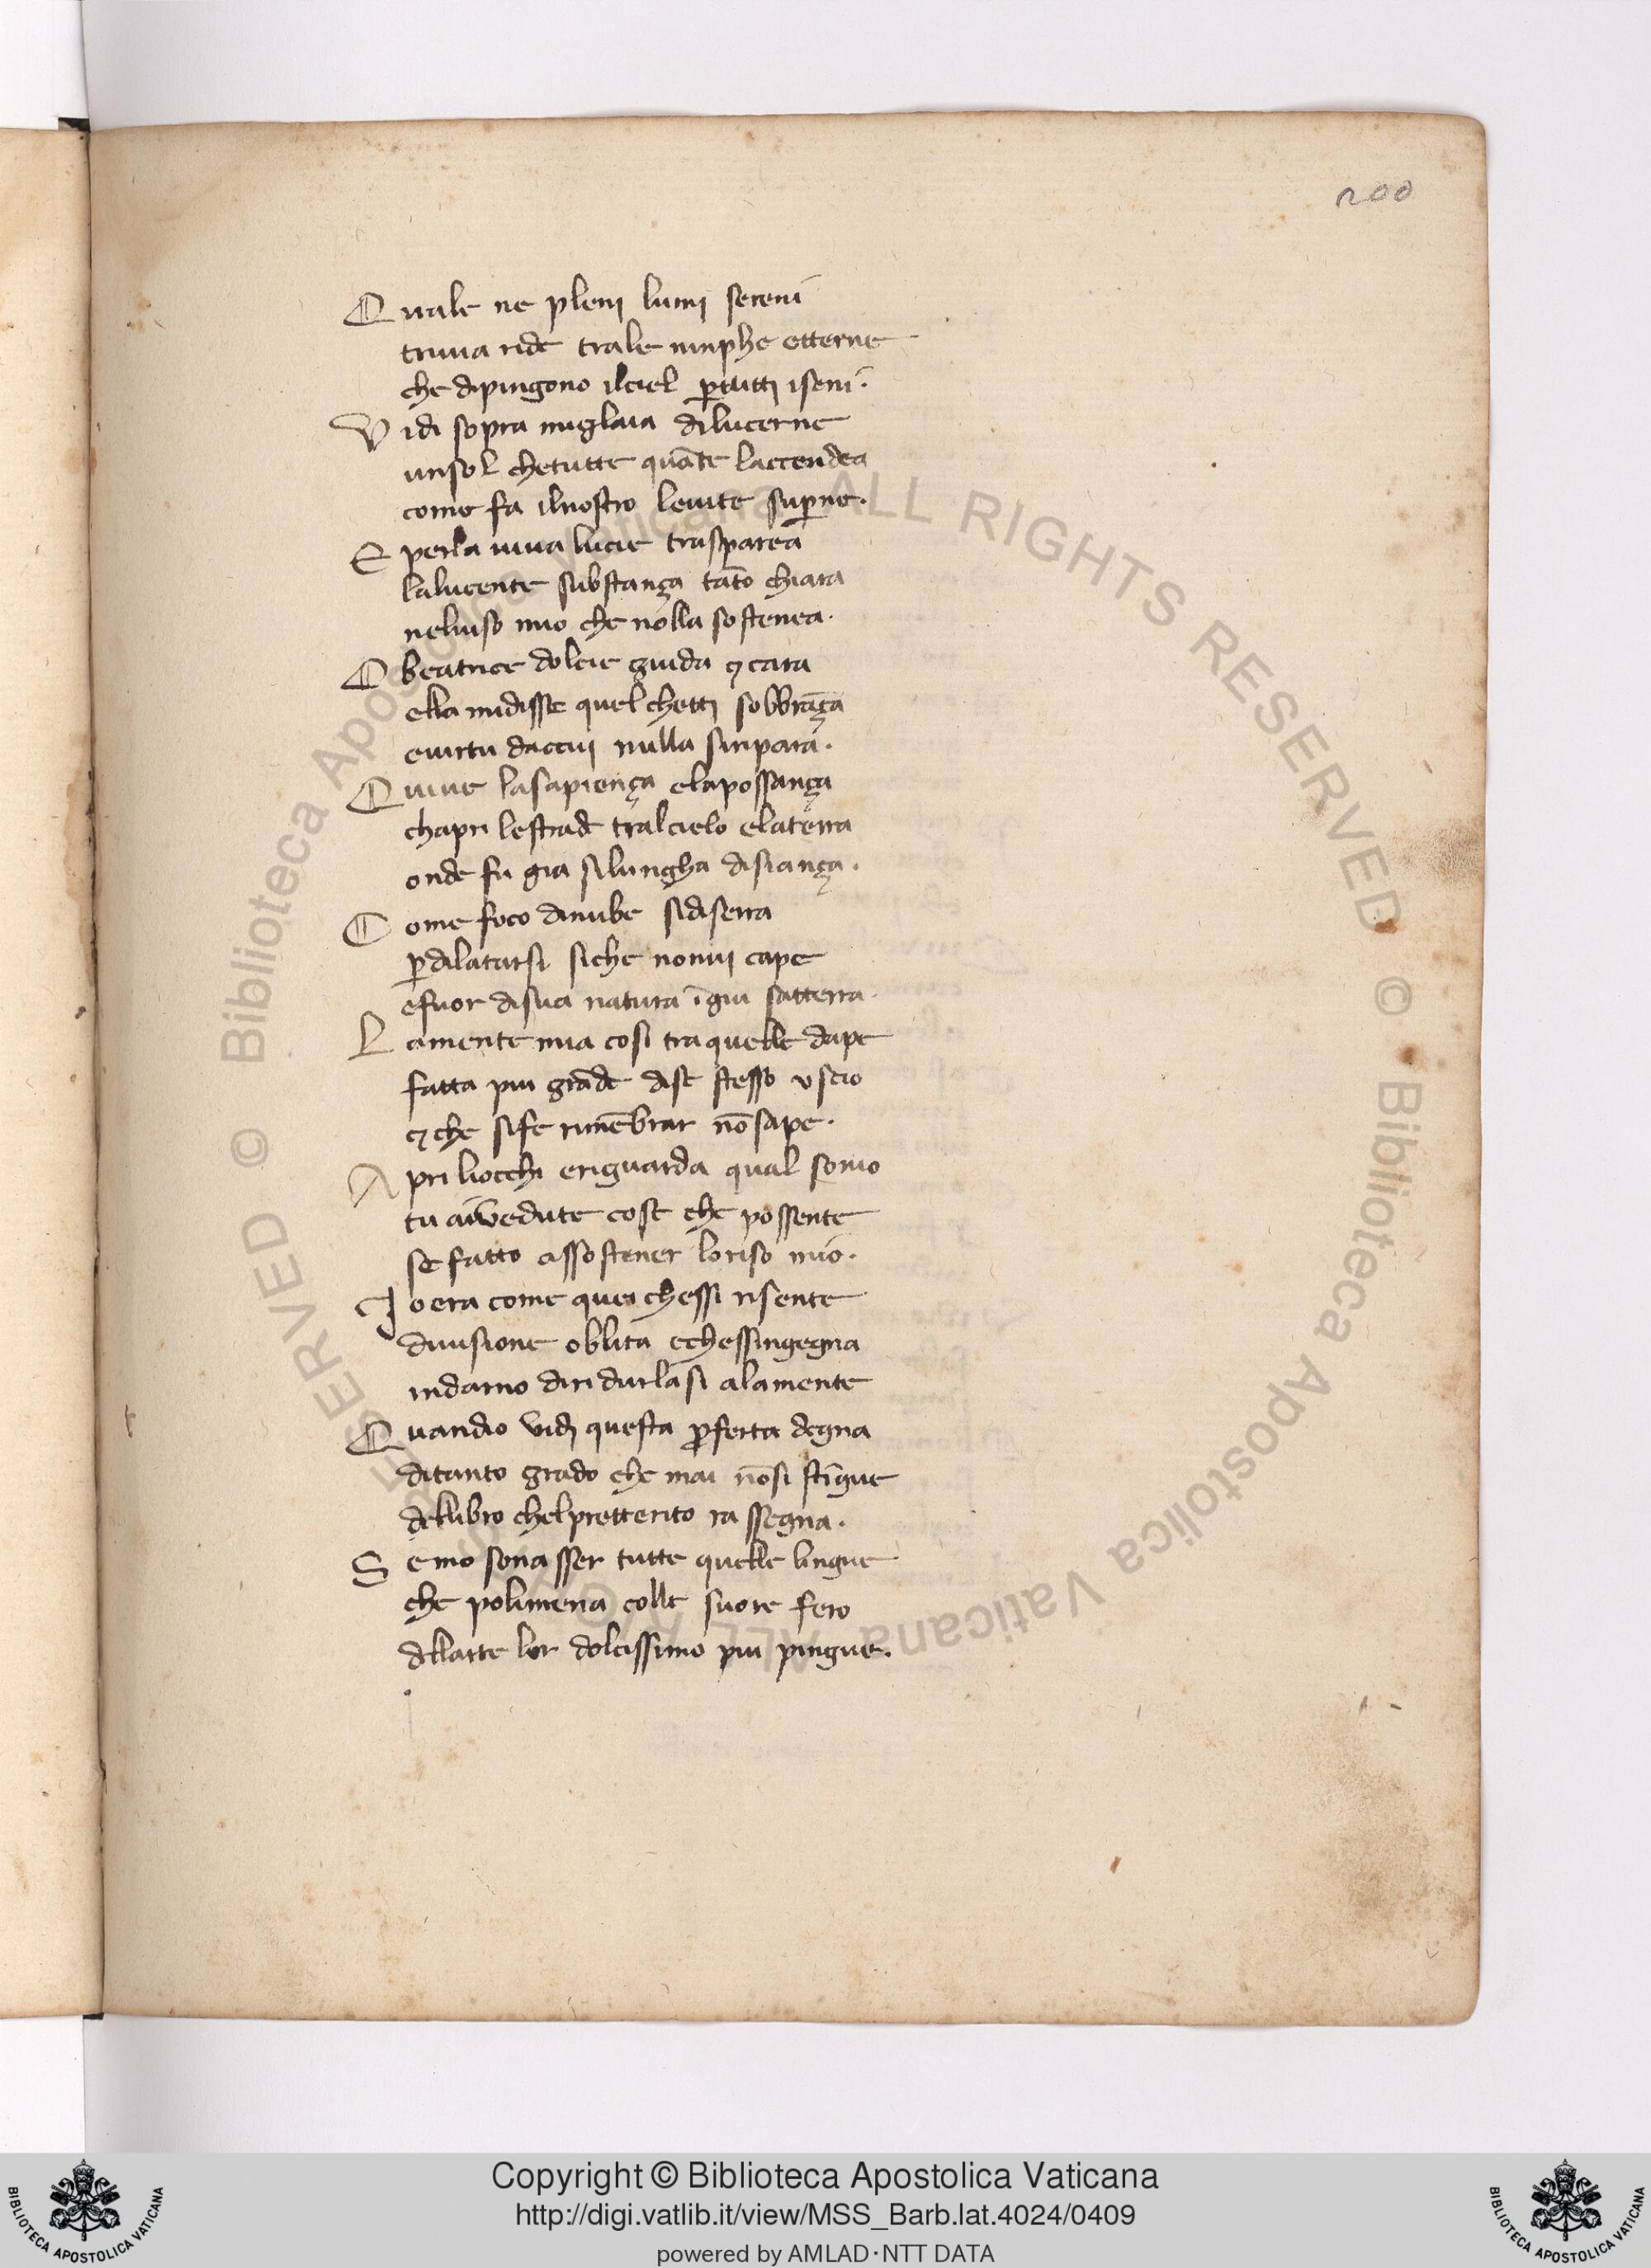 200
Quale ne pleni lumi sereni
truia ride trale ninphe etterne
che dipingono ilciel ꝑtutti iseni·
Vidi sopra miglaia dilucerne
unsol chetutte quāte laccendea
come fa ilnostro leuite suꝑne·
E perla uiua lucie trasparea
lalucente substança tāto chiara
neluiso mio che nōlla sostenea·
O beatrice dolcie guida ⁊ cara
ella midisse quel chetti sobbrāça
euirtu daccui nulla siripara·
Quiue lasapiença elapossança
chapri lestrade tralcielo elaterra
onde fu gia silungha disiança·
Come foco dinube sidiserra
ꝑdilatarsi siche nonui cape
efuor disua natura īgiu satterra·
Lamente mia cosi tra quelle dape
fatta piu grāde dise stesso uscio
⁊ che sife rimēbrar nōsape·
Apri liocchi eriguarda qual sonio
tu aivedute cose che possente
se fatto assostener loriso mio·
Io era come quei chessi risente
diuisione oblita echessingegna
indarno diridurlasi alamente
Quando vidi questa ꝓferta degna
ditanto grado che mai nōsi stīgue
dellibro chelpretterito rassegna·
Se mo sonasser tutte quelle lingue
che polimena colle suore fero
dellatte lor dolcissimo piu pingue·
© Biblioteca Apostolica Vaticana ALL RIGHTS RESERVED © Biblioteca Apostolica Vaticana ALL RIGHTS RESERVED
Copyright © Biblioteca Apostolica Vaticana
http://digi.vatlib.it/view/MSS_Barb.lat.4024/0409
powered by AMLAD·NTT DATA
BIBLIOTECA APOSTOLICA VATICANA
BIBLIOTECA APOSTOLICA VATICANA